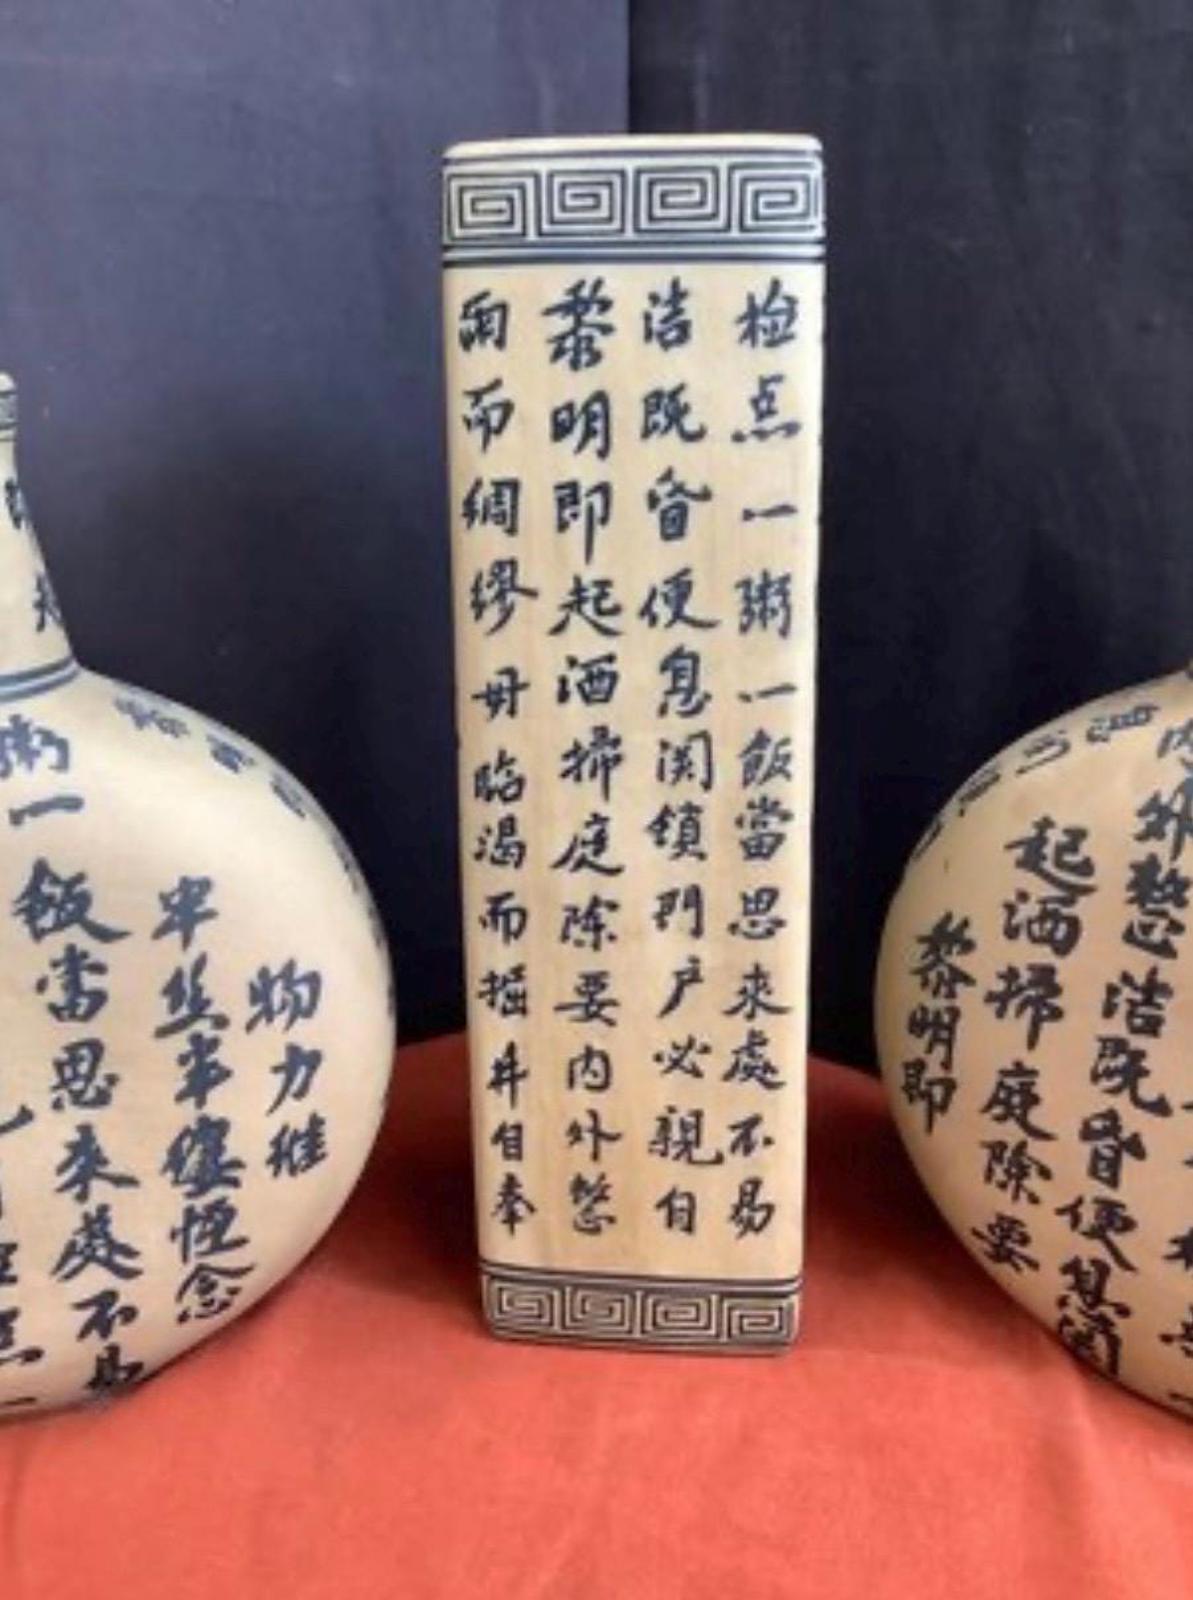 粥一飯當思来處不易
半丝半縷恆念
物力維
雨而綢繆毋臨渴而掘井自奉
黎明即起洒掃庭除要内外整
洁既昏便息関鎖門户必親自
检点一粥一飯當思來處不易
黎明即
起洒掃庭除要
内外整洁既昏便息関